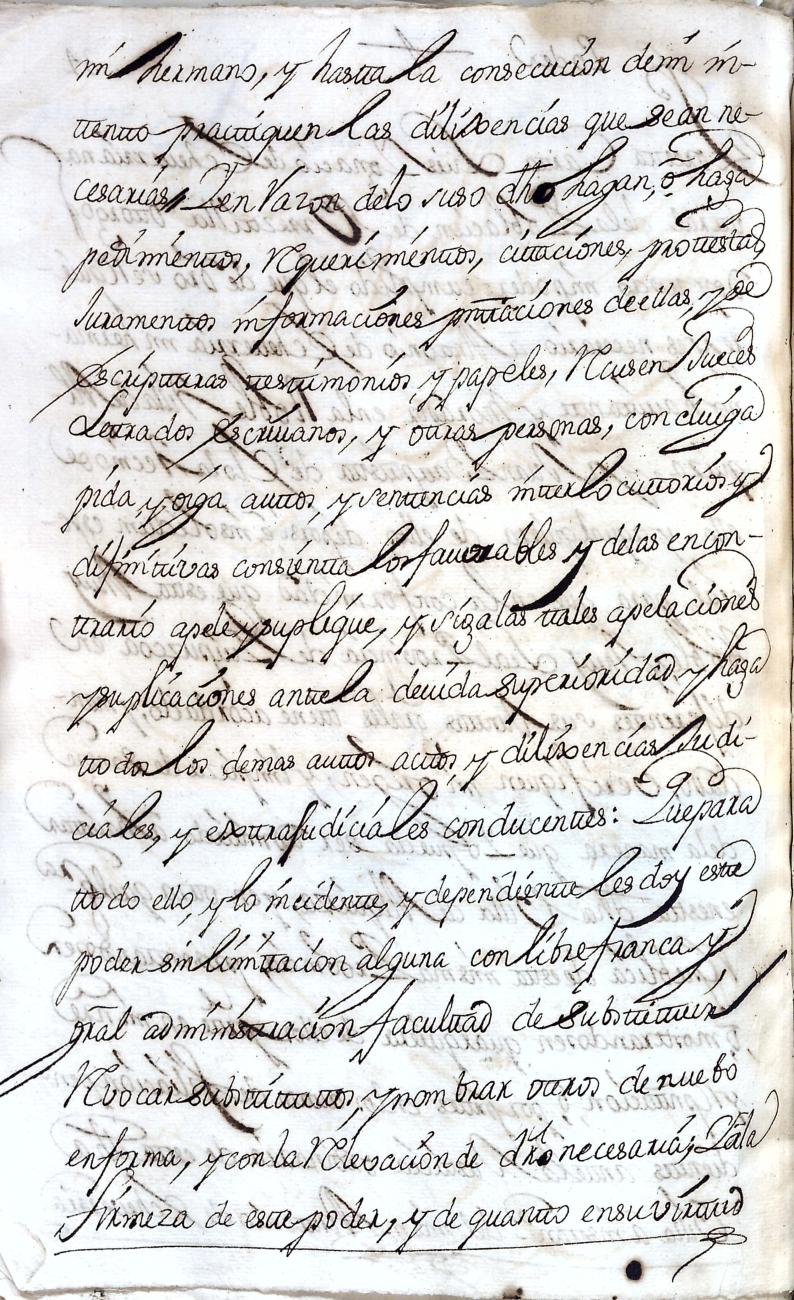 mi hermano, y hasta la consecucion de mi in-
tento practiquen las dilixencias que sean ne-
cesarias, Y en Razon delo suso dho hagan, ò haga
pedimentos, Requerimentos, citaciones, protestas
Juramentos informaciones pntaciones de ellas, y de
Escripturas testimonios, y papeles, Recusen Jueces
Letrados Escrivanos, y otras personas, concluiga
pida, y oiga autos, y sentencias interlocutorios y
difinitivas consienta los favorables y delas encon-
trario apele y suplique, y siga las tales apelaciones
y suplicaciones ante la devida superioridad y haga
todos los demas autos actos, y dilixencias Judi-
ciales, y extrajudiciales conducentes: Que para
todo ello, y lo incidente, y dependiente les doy este
poder sin limitacion alguna con libre franca y
gral administracion facultad de substituir
Revocar substitutos, y nombrar otros de nuebo
en forma, y con la Relevacion de dro necesaria; Y a la
firmeza de este poder, y de quanto en su virtud